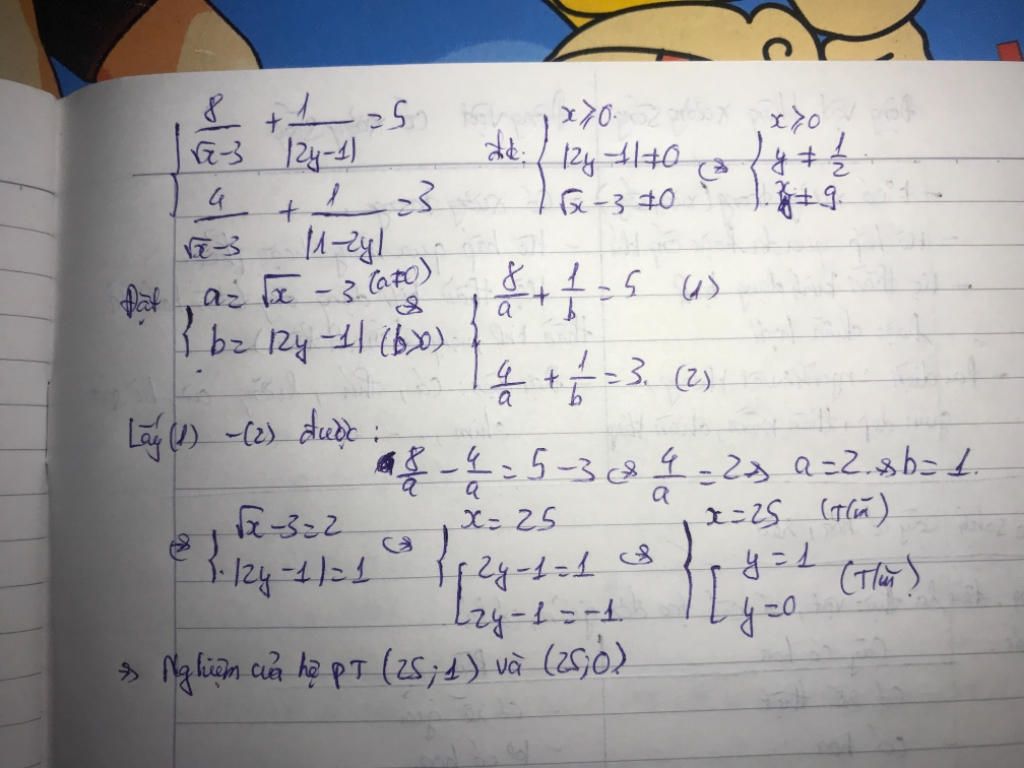 { 8/(√x-3) + 1/|2y-1| = 5 đk: { x ≥ 0 |2y-1| ≠ 0 √x-3 ≠ 0 ⇔ { x ≥ 0 y ≠ 1/2 x ≠ 9
4/(√x-3) + 1/|1-2y| = 3
Đặt { a = √x - 3 (a≠0) b = |2y-1| (b>0) ⇒ { 8/a + 1/b = 5 (1)
4/a + 1/b = 3. (2)
Lấy (1) - (2) được:
8/a - 4/a = 5 - 3 ⇔ 4/a = 2 ⇒ a = 2 ⇒ b = 1.
⇒ { √x-3 = 2 |2y-1| = 1 ⇔ { x = 25 [ 2y-1 = 1 2y-1 = -1 ⇔ { x = 25 (T/m) [ y = 1 y = 0 (T/m)
⇒ Nghiệm của hệ pT (25; 1) và (25; 0)